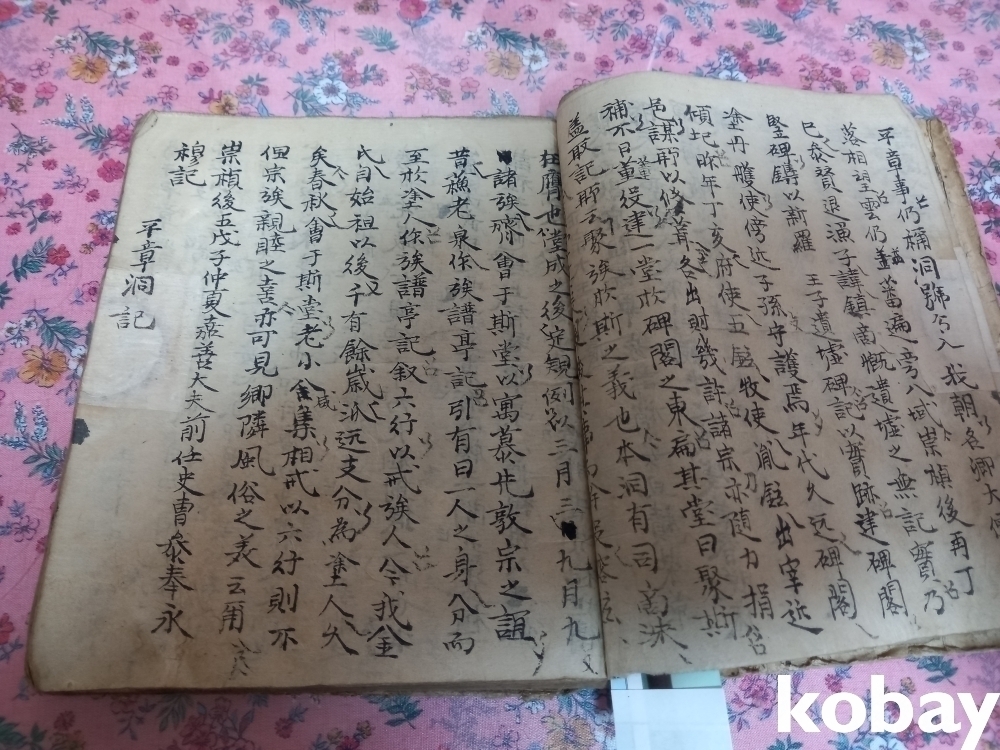 平章事仍稱洞號今入 我朝名卿大
落相望雲仍蕃遍旁八域崇禎後再丁
巳泰賢退漁子諱鎭商慨遺墟之無記實乃
竪碑鐫以新羅 王子遺墟碑記以實跡建碑閣
塗丹雘使傍近子孫守護焉年代久远碑閣
傾圮昨年丁亥府使五鉉牧使胤鉉出宰近
邑謀所以修葺各出財幾許諸宗亦隨力捐
補不日董役建一堂於碑閣之東扁其堂曰聚斯
盖取記所云聚族於斯之義也本洞有司
膺也堂成之後定規例以三月三九月九
諸族齋會于斯堂以寓慕先敦宗之誼
昔蘇老泉作族譜亭記引有曰一人之身分而
至於塗人作族譜亭記叙六行以戒族人今我金
氏自始祖以後千有餘歲派远支分為塗人久
矣春秋會于斯堂老小咸集相戒以六行則不
但宗族親睦之喜亦可見鄉隣風俗之美云爾
崇禎後五戊子仲夏嘉善大夫前任史曹叅奉永
穆記
平章洞記
kobay